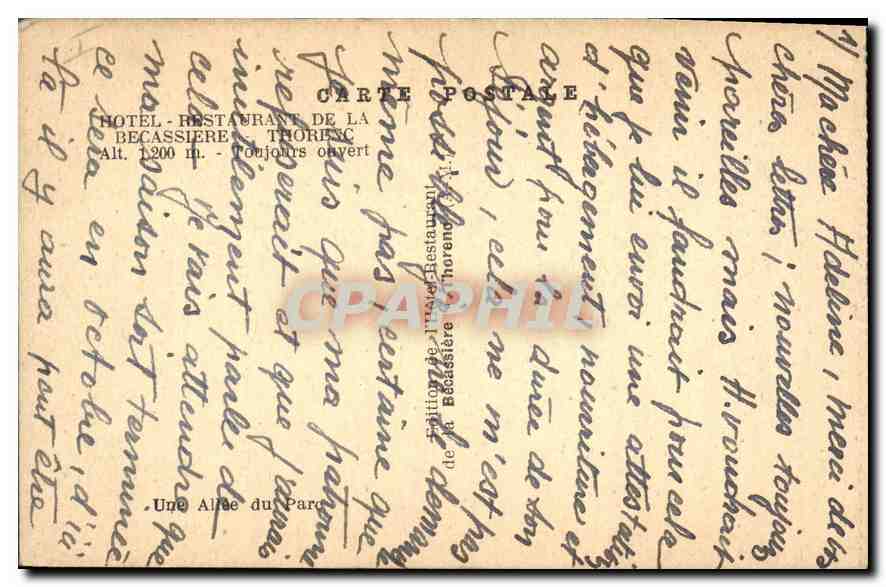 CARTE POSTALE
HOTEL - RESTAURANT DE LA
BECASSIERE - THORENC
Alt. 1.200 m. - Toujours ouvert
Edition de l'Hôtel-Restaurant
de la Bécassière à Thorenc
Une Allée du Parc
CPAPHIL
1/ Ma chère Adeline, merci de vs
chères lettres, nouvelles toujours
pareilles mais H. voudrait
venir il faudrait pour cela
que je lui envoi une attestat°
d'hébagement, nourriture et
argent pour la durée de son
séjour, cela ne m'est pas
possible de demander
même pas, certaine que
je suis que ma patronne
refuserait et que j'aurais
inutilement parlé de
cela. Je vais attendre que
ma saison soit terminée
ce sera en octobre, d'ici
là il y aura peut être